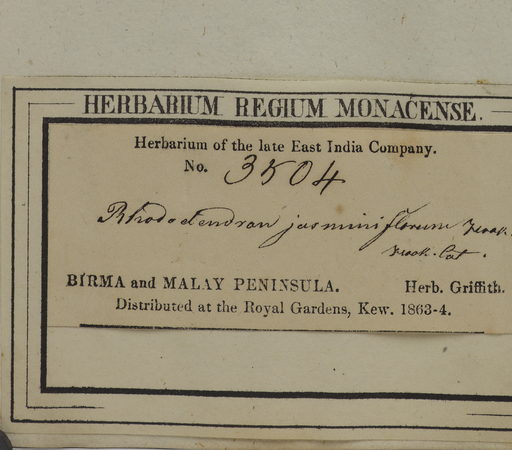 HERBARIUM REGIUM MONACENSE.
Herbarium of the late East India Company.
No. 3504
Rhododendron jasminiflorum Hook.
Hook. Cat.
BIRMA and MALAY PENINSULA. Herb. Griffith.
Distributed at the Royal Gardens, Kew. 1863-4.